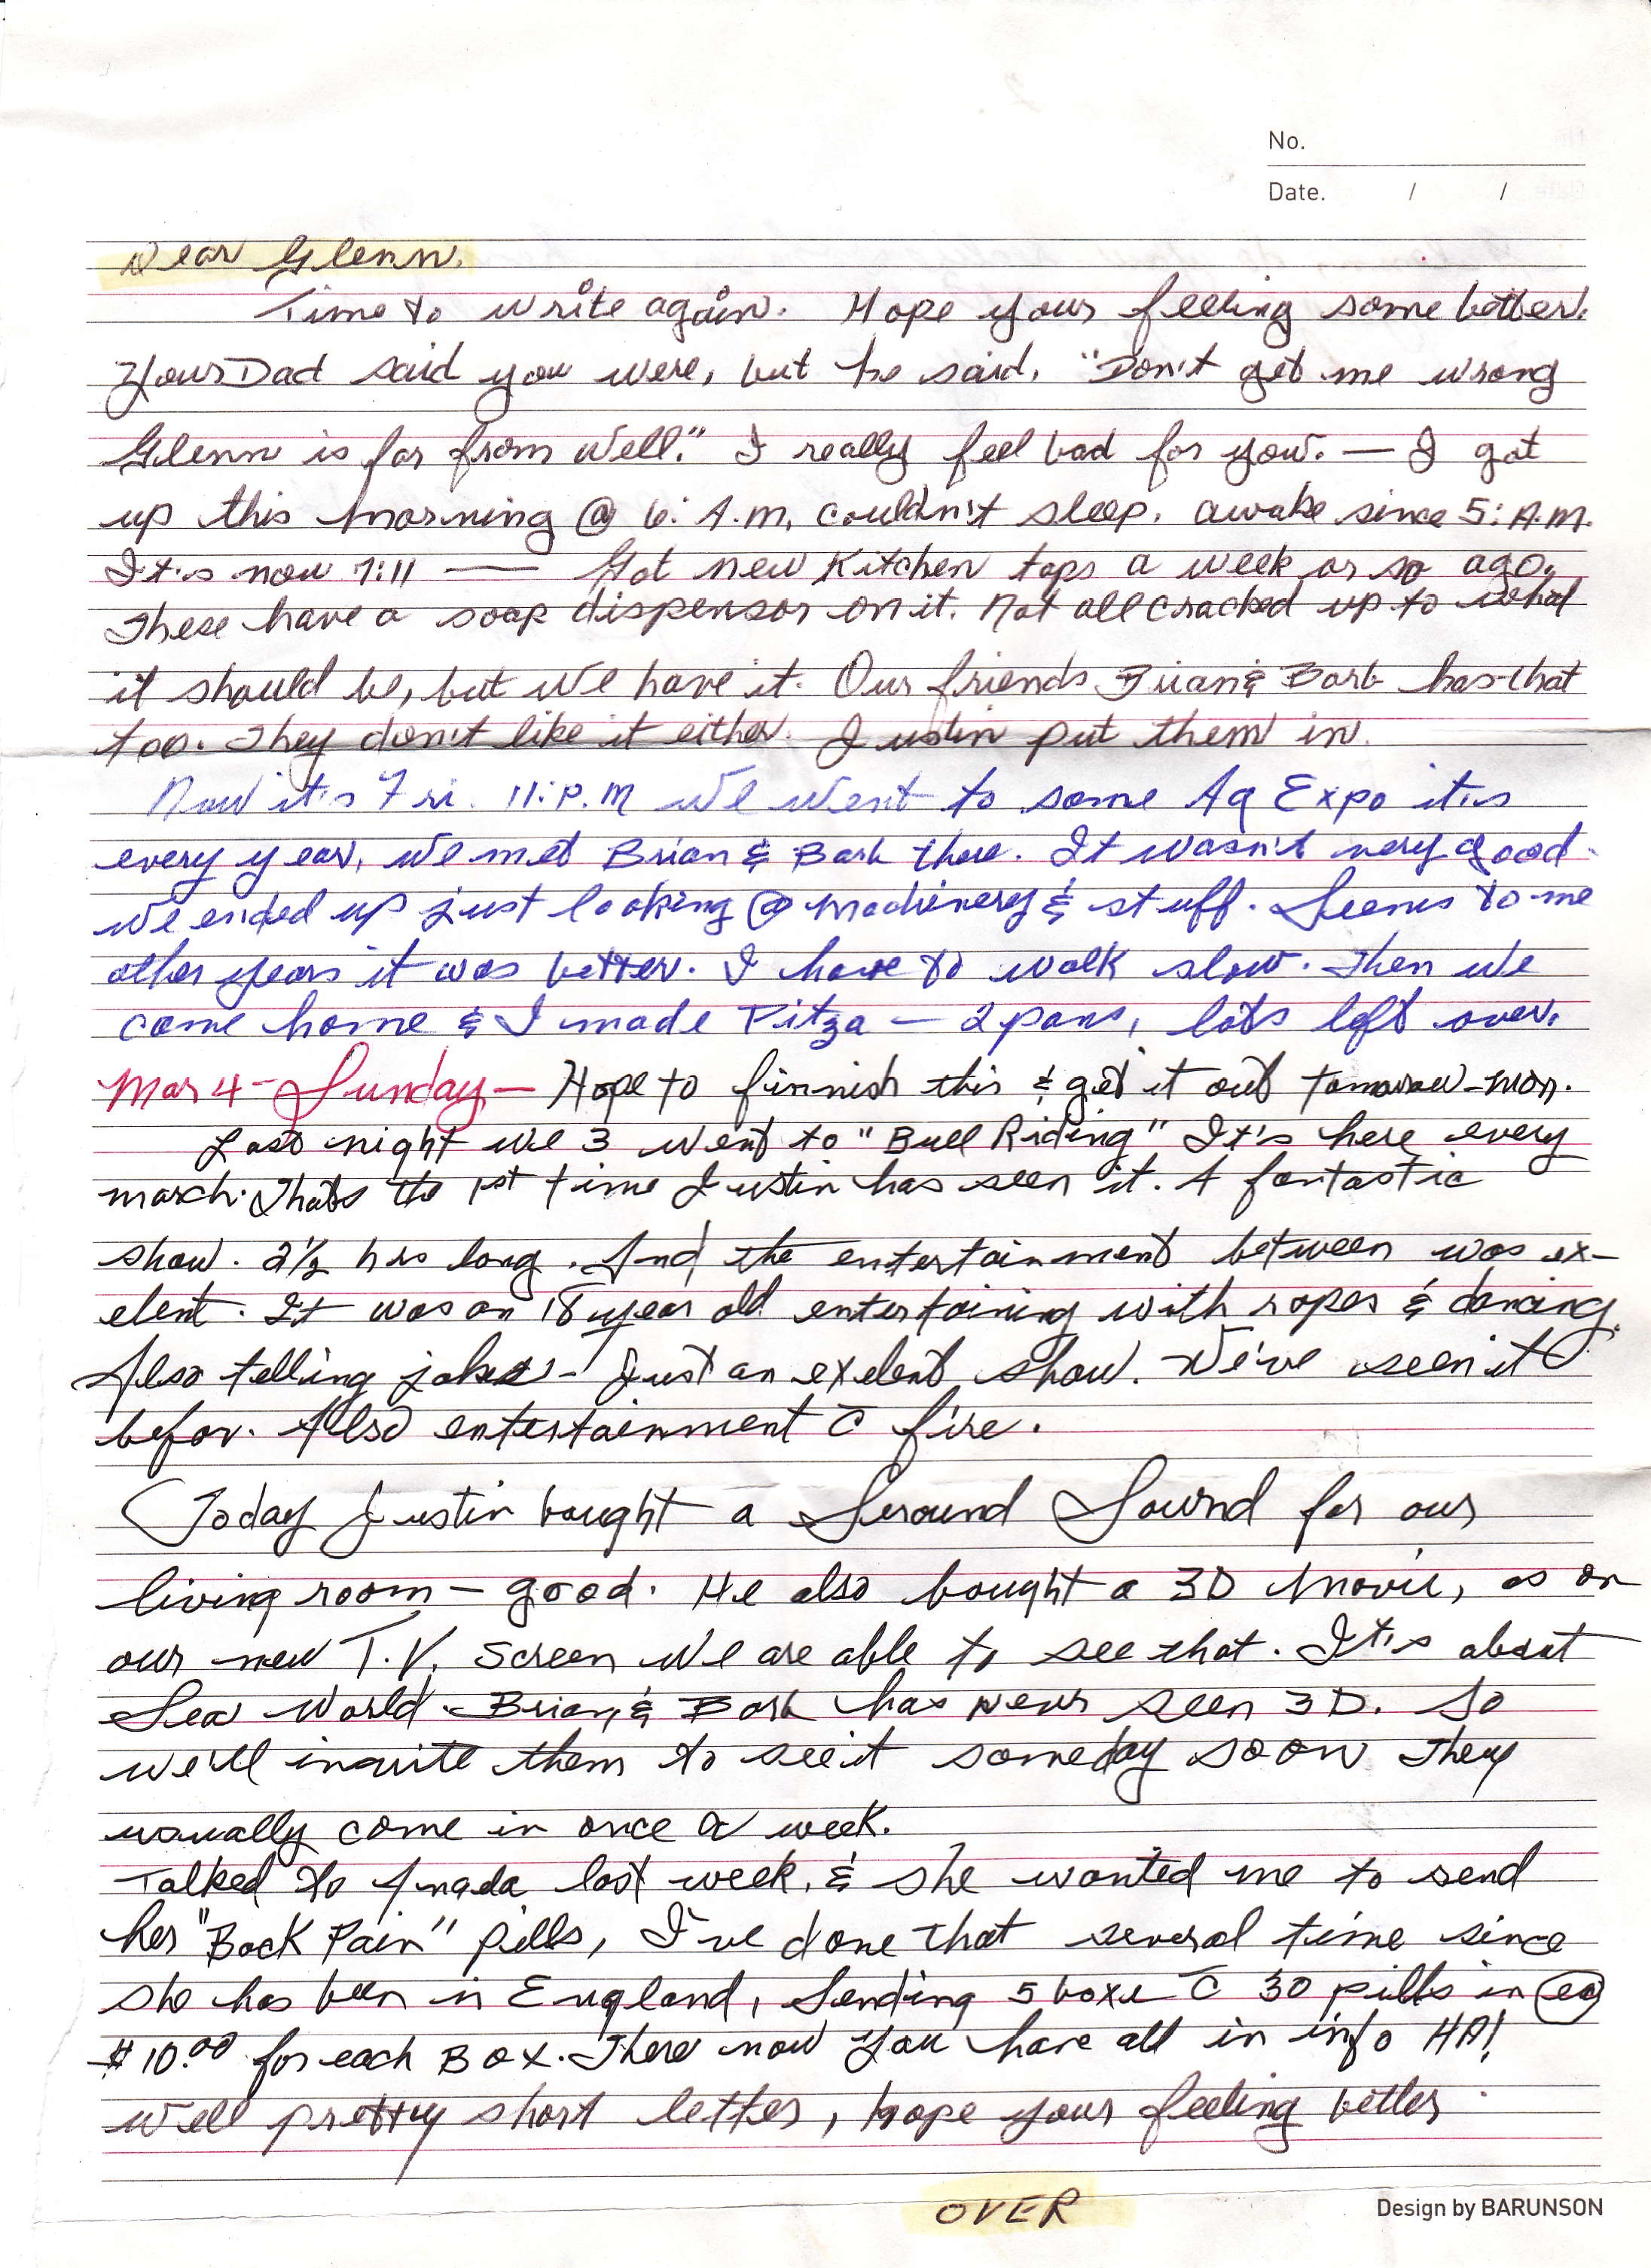 No.
Date. / /
Dear Glenn.
Time to write again. Hope your feeling some better.
Your Dad said you were, but he said, "Don't get me wrong
Glenn is far from well." I really feel bad for you. — I got
up this morning @ 6: A.M. couldn't sleep. awake since 5: A.M.
It's now 7:11 —— Got new Kitchen taps a week or so ago.
These have a soap dispensor on it. Not all cracked up to what
it should be, but we have it. Our friends Brian & Barb has that
too. They don't like it either. Justin put them in.
Now it's Fri. 11: P.M We went to some Ag Expo it's
every year, we met Brian & Barb there. It wasn't very good.
we ended up just looking @ machinery & stuff. Seems to me
other years it was better. I have to walk slow. Then we
came home & I made Pitza — 2 pans, lots left over.
Mar 4 - Sunday — Hope to finnish this & get it out tomorrow - mon.
Last night we 3 went to "Bull Riding" It's here every
march. Thats the 1st time Justin has seen it. A fantastic
show. 2½ hrs long. And the entertainment between was ex-
elent. It was an 18 year old entertaining with ropes & dancing.
Also telling jokes - Just an exelent show. We've seen it
befor. Also entertainment c̄ fire.
Today Justin bought a Seround Sound for our
living room — good. He also bought a 3D Movie, as on
our new T.V. Screen we are able to see that. It's about
Sea World. Brian & Barb has never seen 3D. So
we'll invite them to see it someday soon They
usually come in once a week.
Talked to last week, & she wanted me to send
her "Back Pain" pills, I've done that several time since
she has been in England, Sending 5 boxe c̄ 30 pills in ea
$10.00 for each Box. There now you have all in info HA!
Well pretty short letter, hope your feeling better
OVER
Design by BARUNSON